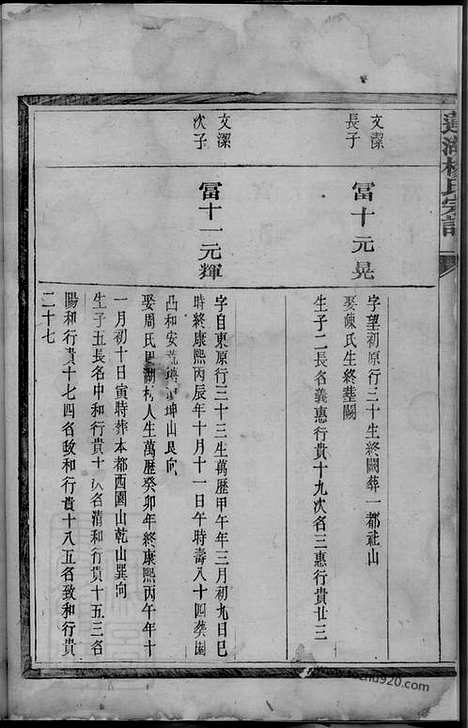 蓮湖楊氏宗譜
文潔
長子
冨十元晃
字望初原行三十生終闕葬一都社山
娶陳氏生終葬闕
生子二長名義惠行貴十九次名三惠行貴廿三
文潔
次子
冨十一元輝
字自東原行三十三生萬歷甲午年三月初九日巳
時終康熙丙辰年十月十一日午時壽八十四葬園
凸和安 坤山艮向
娶周氏 湖 人生萬歷癸卯年終康熙丙午年十
一月初十日寅時葬本都西園山乾山巽向
生子五長名中和行貴十 次名清和行貴十五三名
陽和行貴十七四名政和行貴十八五名致和行貴
二十七
920.com